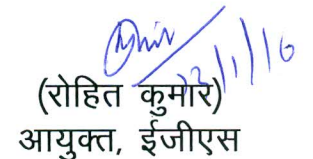 22/1/16
(रोहित कुमार)
आयुक्त, ईजीएस